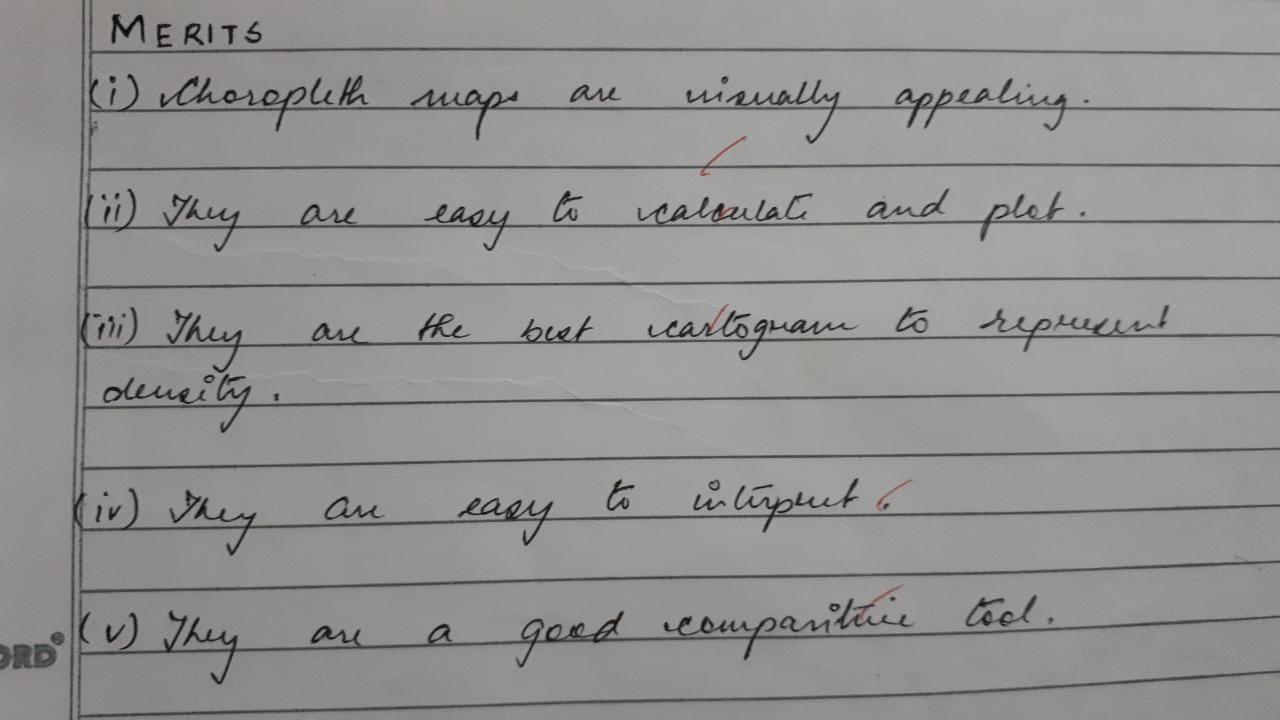 MERITS
(i) Choropleth maps are visually appealing.
(ii) They are easy to calculate and plot.
(iii) They are the best cartogram to represent
density.
(iv) They are easy to interpret.
(v) They are a good comparitive tool.
ORD®